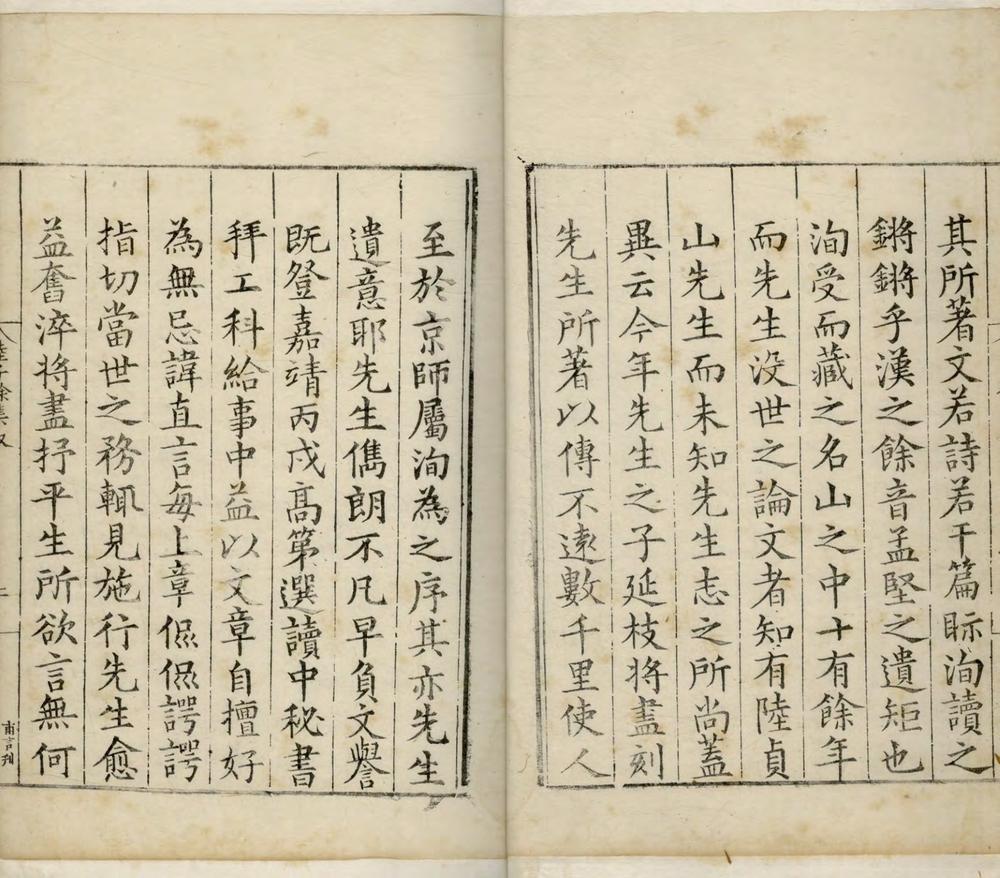 其所著文若詩若干篇眎洵讀之
鏘鏘乎漢之餘音孟堅之遺矩也
洵受而藏之名山之中十有餘年
而先生没世之論文者知有陸貞
山先生而未知先生志之所尚蓋
異云今年先生之子延枝将盡刻
先生所著以傳不遠數千里使人
至於京師屬洵為之序其亦先生
遺意耶先生儁朗不凡早負文譽
既登嘉靖丙戌高第選讀中秘書
拜工科給事中益以文章自擅好
為無忌諱直言每上章侃侃諤諤
指切當世之務輒見施行先生愈
益奮淬将盡抒平生所欲言無何